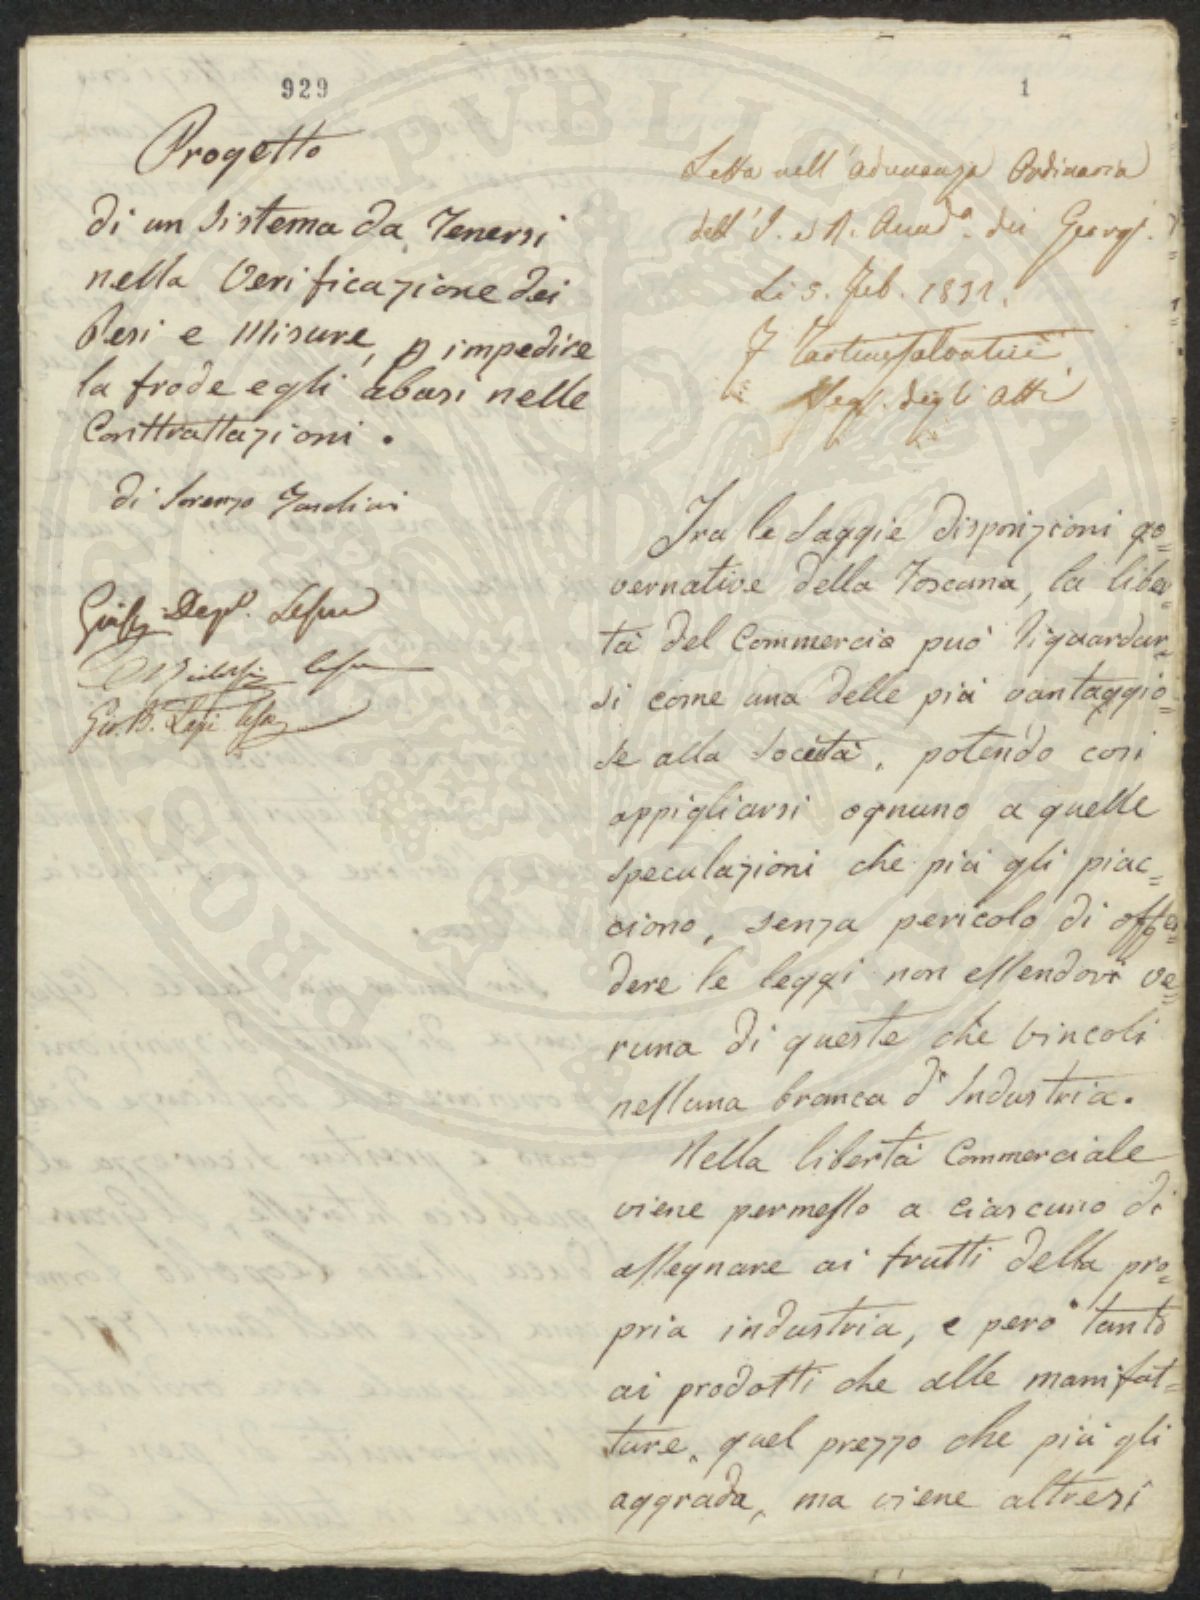 929
Progetto
di un Sistema da Tenersi
nella Verificazione dei
Pesi e Misure, p impedire
la frode e gli abusi nelle
Conttrattazioni.
di Lorenzo
1
Letta nell'adunanza Ordinaria
dell'I. e R. Accad.a dei Georgf.
Li 5. Feb. 1831.
Seg. degli Atti
Tra le Saggie disposizioni go=
vernative della Toscana, la liber=
tà del Commercio può riguardar=
si come una delle più vantaggio=
se alla Società, potendo così
appigliarsi ognuno a quelle
speculazioni che più gli piac=
ciono, senza pericolo di offen=
dere le leggi non essendovi ve=
runa di queste che vincoli
nessuna branca d'Industria.
Nella libertà Commerciale
viene permesso a ciascuno di
assegnare ai frutti della pro=
pria industria, e però tanto
ai prodotti che alle manifat=
ture, quel prezzo che più gli
aggrada, ma viene altresì
PROSPERITATI PVBLICAE AVGENDAE